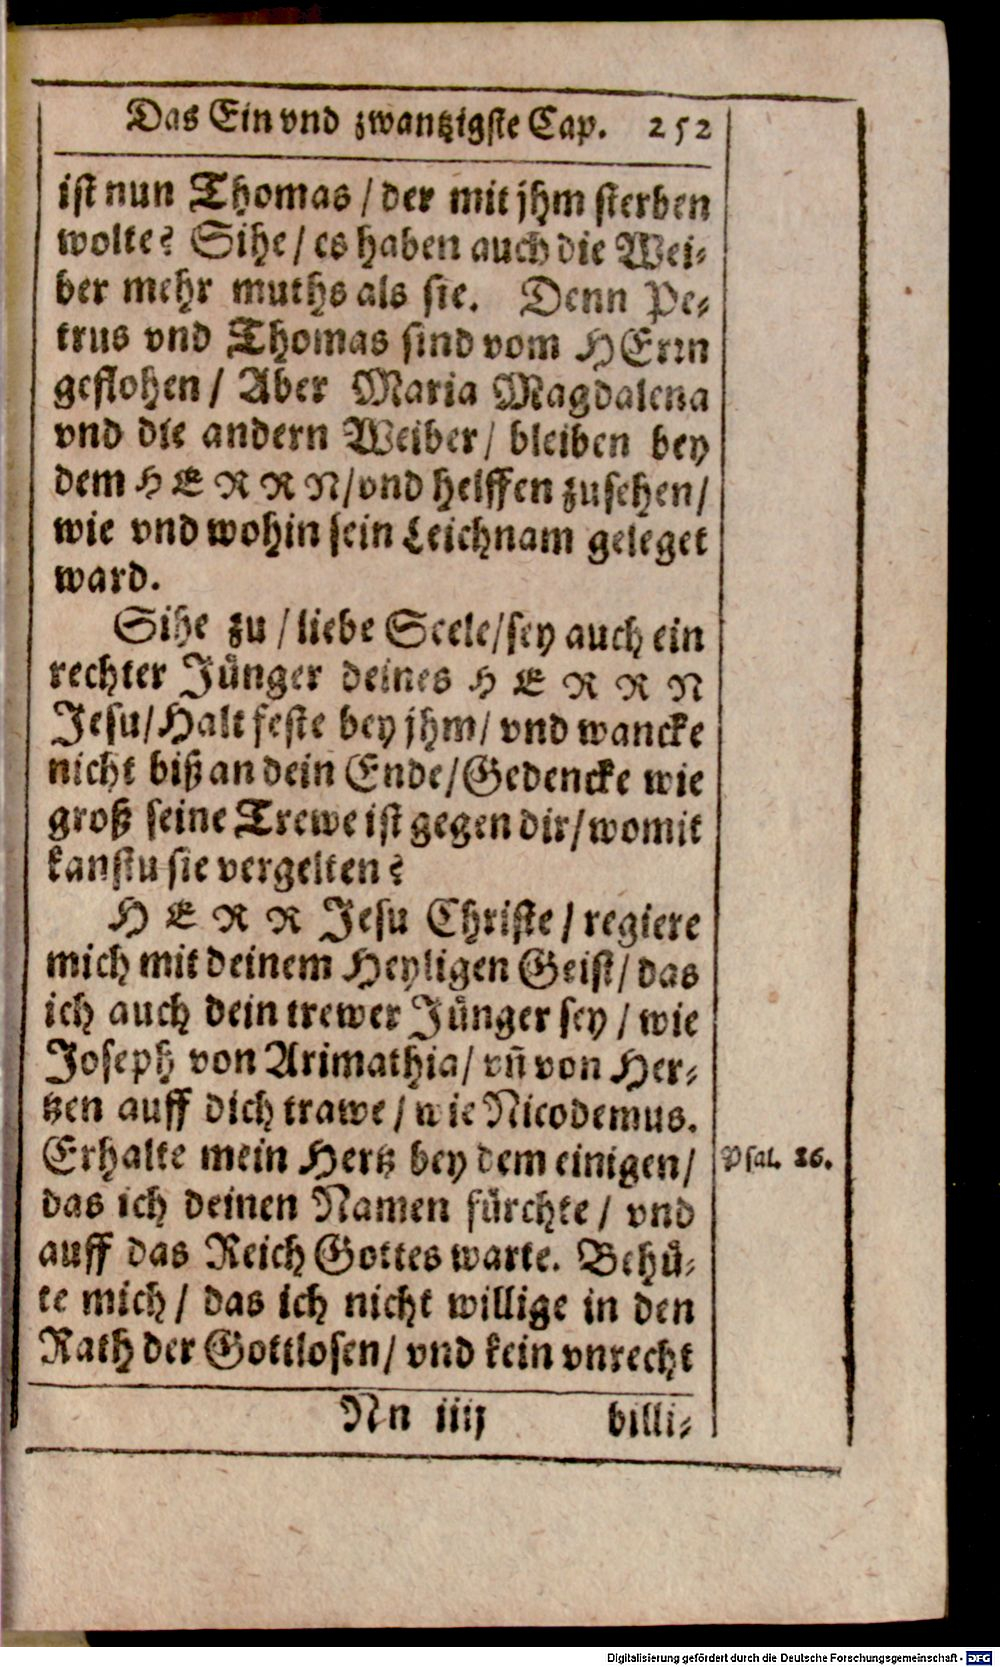 Das Ein vnd zwantzigste Cap. 252
ist nun Thomas / der mit jhm sterben
wolte? Sihe / es haben auch die Wei-
ber mehr muths als sie. Denn Pe-
trus vnd Thomas sind vom HErrn
geflohen / Aber Maria Magdalena
vnd die andern Weiber / bleiben bey
dem HERRN / vnd helffen zusehen /
wie vnd wohin sein Leichnam geleget
ward.
Sihe zu / liebe Seele / sey auch ein
rechter Jünger deines HERRN
Jesu / Halt feste bey jhm / vnd wancke
nicht biß an dein Ende / Gedencke wie
groß seine Trewe ist gegen dir / womit
kanstu sie vergelten?
HERR Jesu Christe / regiere
mich mit deinem Heyligen Geist / das
ich auch dein trewer Jünger sey / wie
Joseph von Arimathia / vñ von Her-
tzen auff dich trawe / wie Nicodemus.
Erhalte mein Hertz bey dem einigen /
Psal. 86.
das ich deinen Namen fürchte / vnd
auff das Reich Gottes warte. Behü-
te mich / das ich nicht willige in den
Rath der Gottlosen / vnd kein vnrecht
Nn iiij billi-
Digitalisierung gefördert durch die Deutsche Forschungsgemeinschaft - DFG